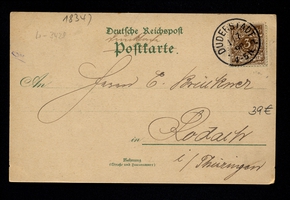 1834)
Deutsche Reichspost
Postkarte
DUDERSTADT
3
An Herrn E. Brückner
39€
in Rodach
i/Thüringen
Wohnung
(Straße und Hausnummer)